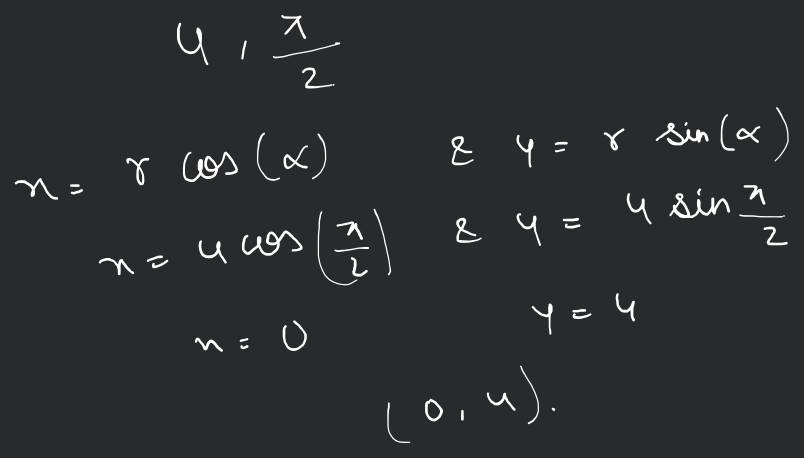 4, π/2
x = r cos(α) & y = r sin(α)
x = 4 cos(π/2) & y = 4 sin π/2
x = 0 y = 4
(0, 4).